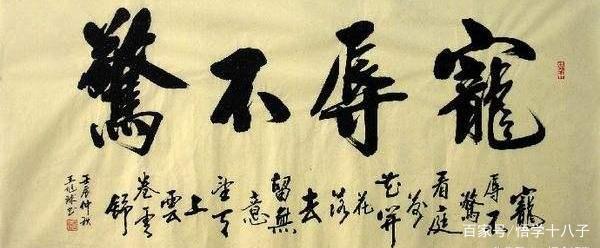 寵辱不驚
寵
辱不
驚
看庭
前
花開
花落
去
留無
意
望天
上
雲
卷雲
舒
壬辰仲秋
百家号/悟学十八子